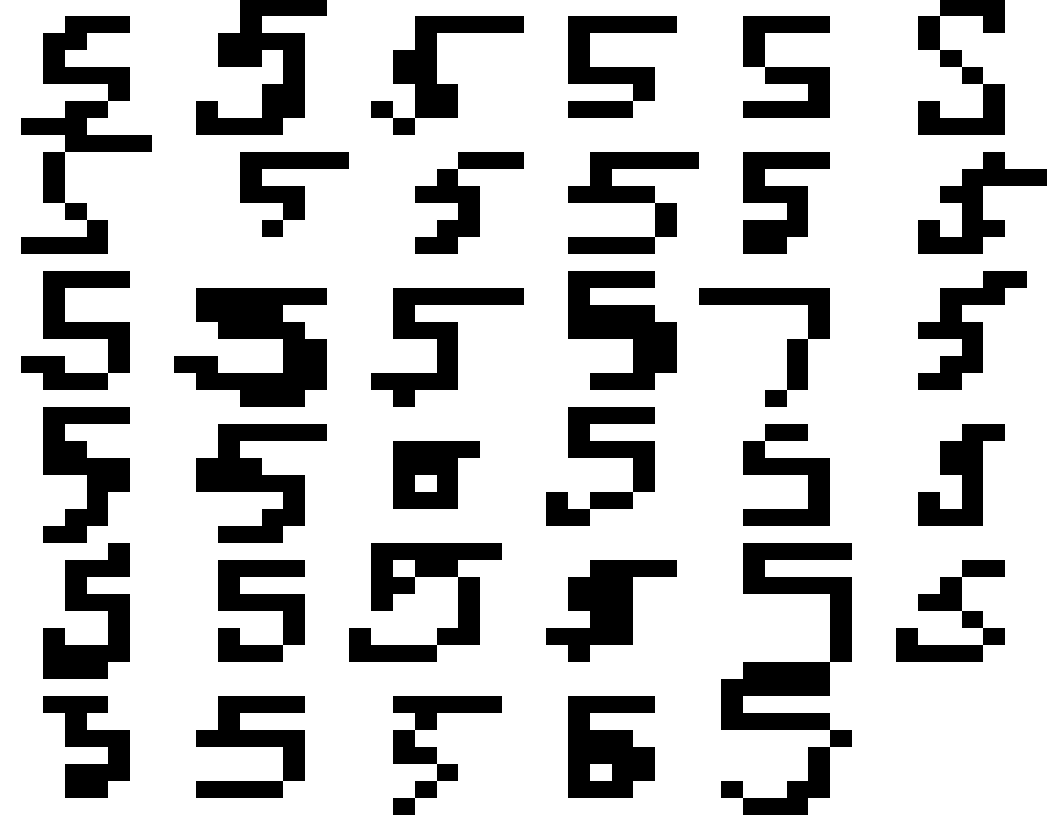 5 5 5 5 5 5
5 5 5 5 5 5
5 5 5 5 7 5
5 5 5 5 5
5 5 5 5 5 5
5 5 5 6 5